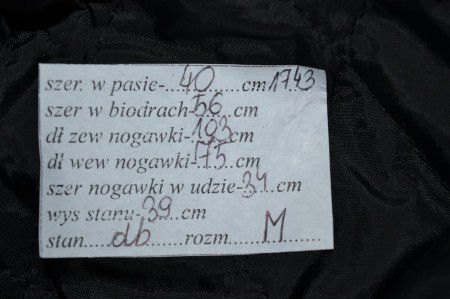 szer. w pasie-....40.......cm1743
szer w biodrach-56..cm
dł zew nogawki-.103.cm
dł wew nogawki-.75..cm
szer nogawki w udzie-.31..cm
wys stanu-.39..cm
stan......db........rozm.....M........